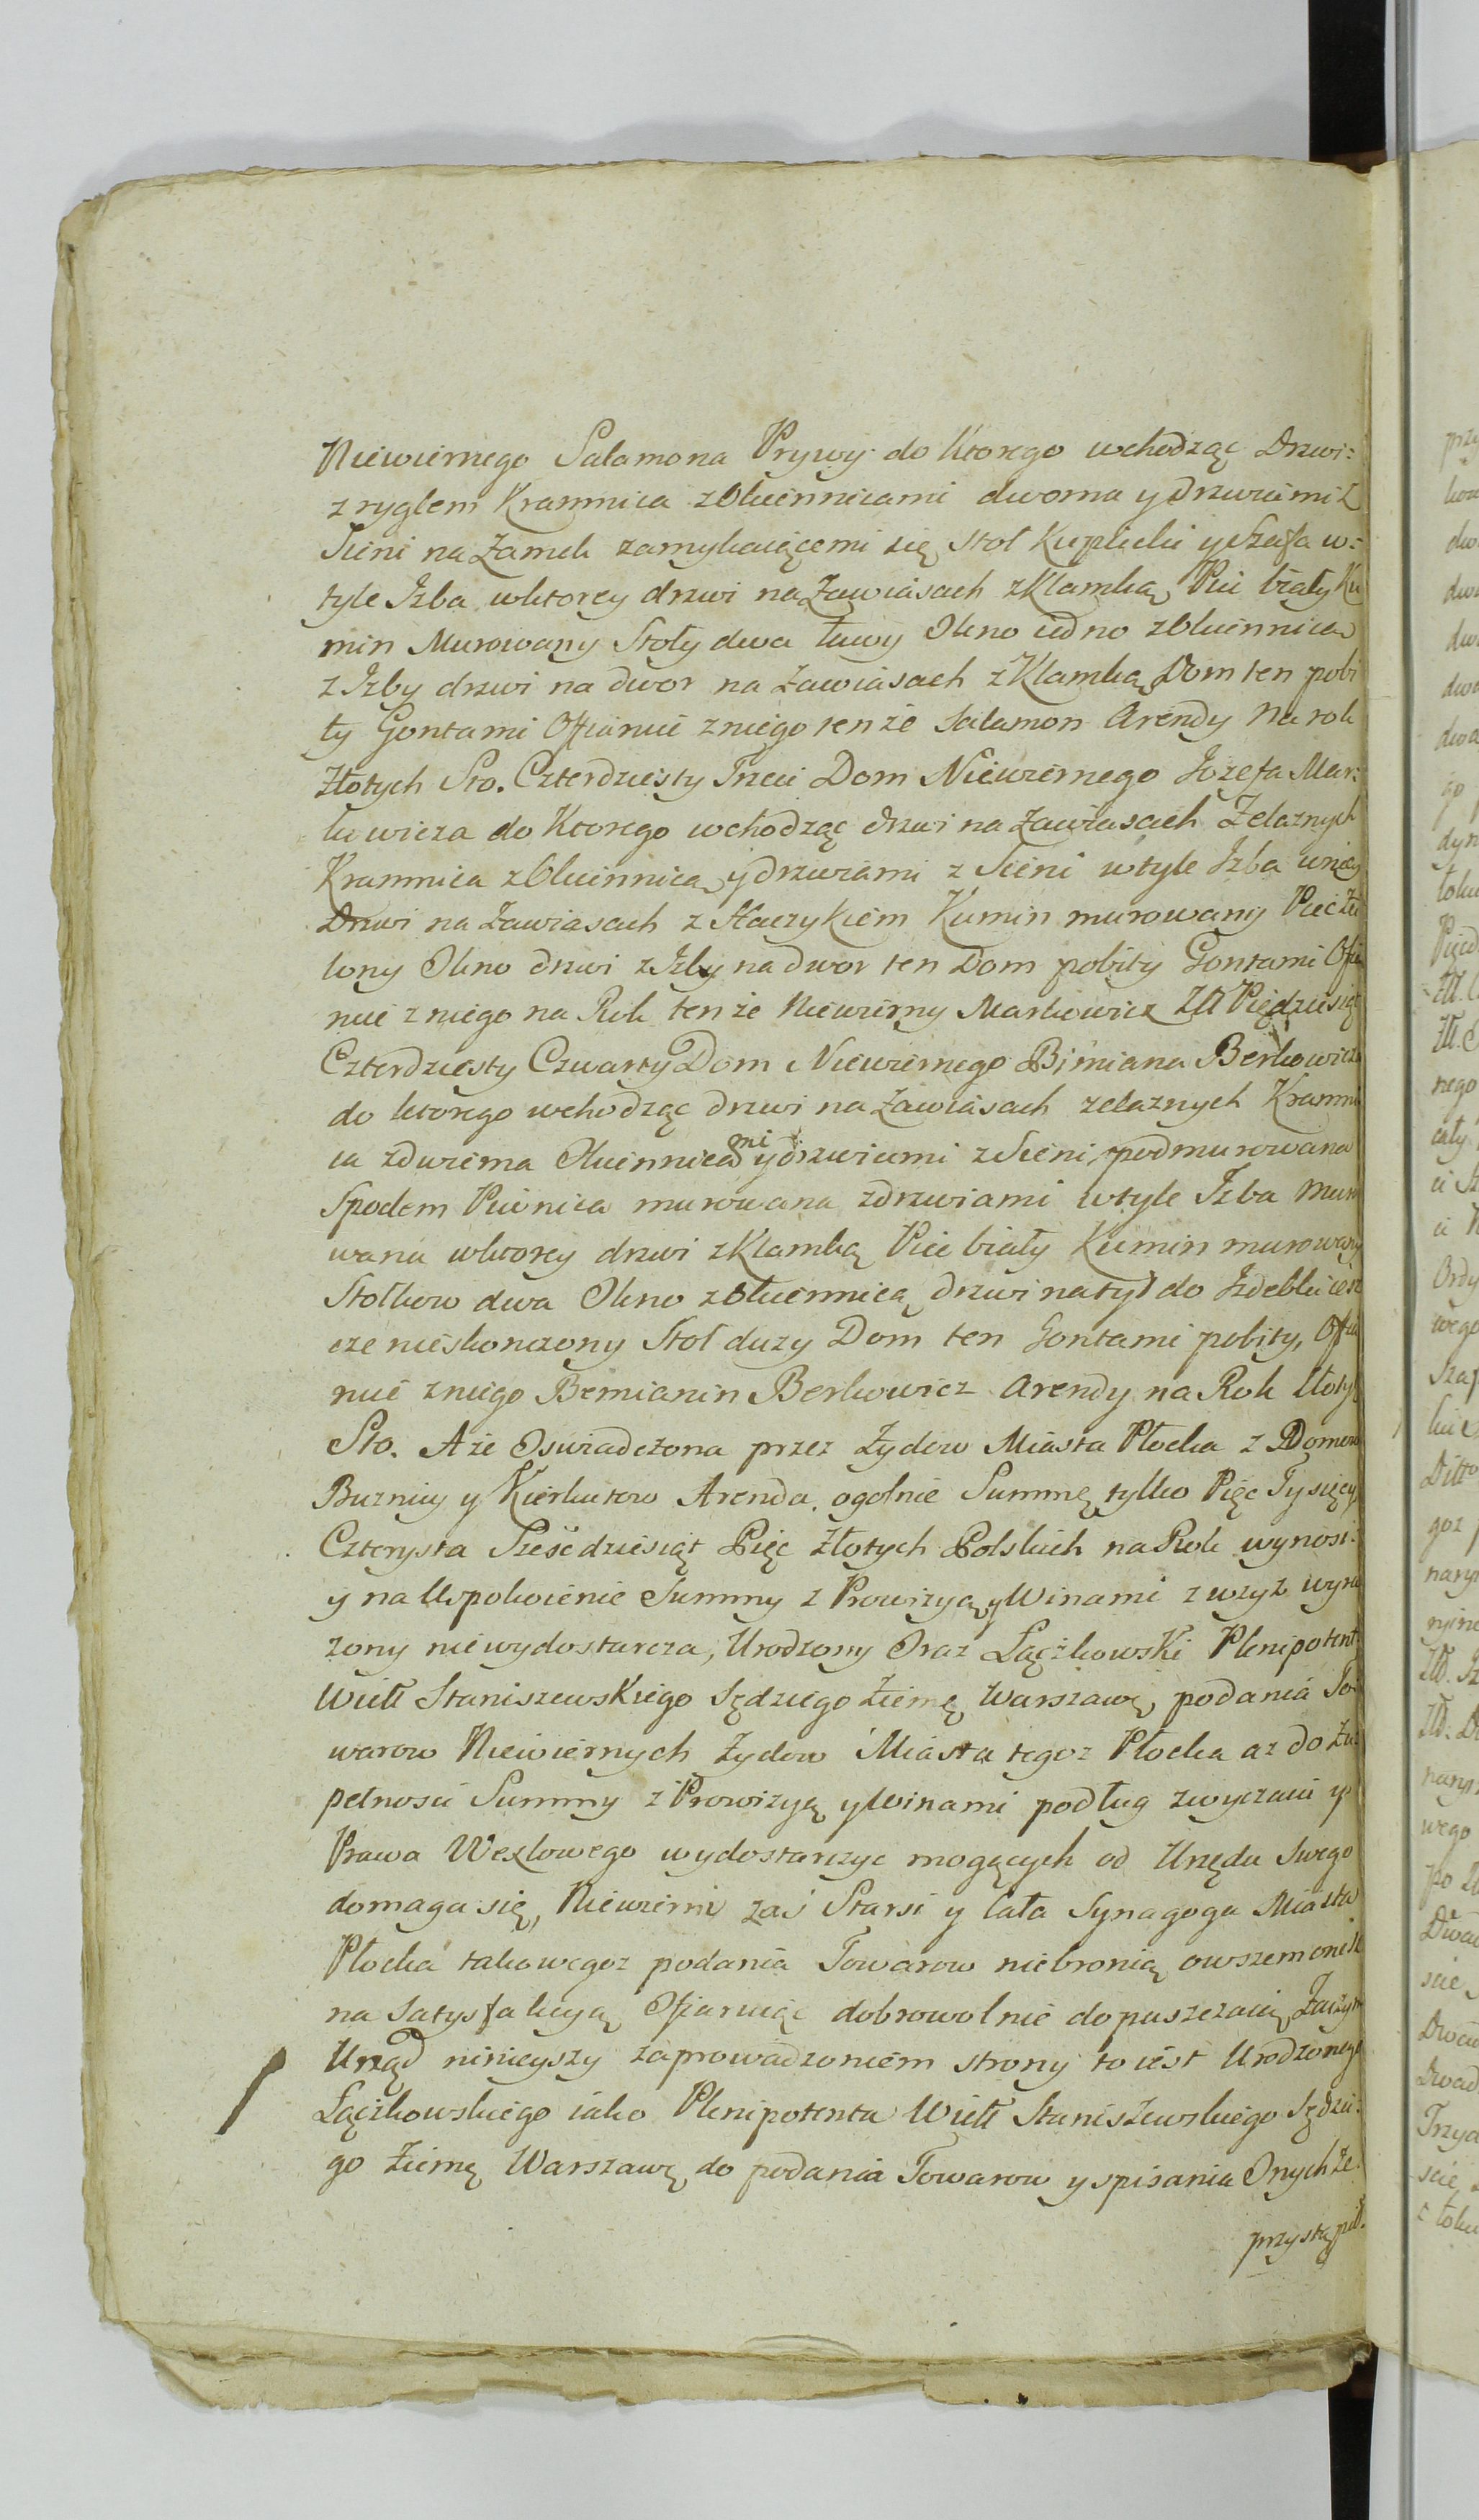 Niewiernego Salamona Prywy do Ktorego wchodząc Drzwi:
z ryglem Kramnica zOkiennicami dwoma y drzwiami z
Sieni na Zamek zamykaiącemi się Stoł Kupiecki y Szafa w:
tyle Izba wktorey drzwi na Zawiasach zKlamką Piec biały Ku
min Murowany Stoły dwa ławy Okno iedno zOkiennicą
z Izby drzwi na dwor na Zawiasach z Klamką Dom ten pobi
ty Gontami Ofiaruie zniego tenże Salamon Arendy Na rok
Złotych Sto. Czterdziesty Trzeci Dom Niewiernego Jozefa Mar:
kowicza do Ktorego wchodząc drzwi na Zawiasach Żelaznych
Kramnica zOkiennicą y drzwiami z Sieni wtyle Izba wniey
Drzwi na Zawiasach z Haczykiem Kumin murowany Piec Zie
lony Okno drzwi z Izby na dwor ten Dom pobity Gontami Ofia
ruie z niego na Rok tenże Niewierny Markowicz Złł Pięćdziesiąt
Czterdziesty Czwarty Dom Niewiernego Bimiana Berkowicza
do ktorego wchodząc drzwi na Zawiasach zelaznych Kramni
ca zdwiema Okiennicami y drzwiami z Sieni, podmurowana
Spodem Piwnica murowana zdrzwiami wtyle Izba Muro
wana wktorey drzwi zKlamką Piec biały Kumin murowany
Stołkow dwa Okno zOkiennicą drzwi natył do Izdebki iesz
cze nieskonczony Stoł duzy Dom ten Gontami pobity, Ofia
ruie zniego Bemianin Berkowicz Arendy na Rok Złotych
Sto. A że Oswiadczona przez Żydow Miasta Płocka z Domow
Buznicy y Kierkutow Arenda ogolnie Summę tylko Pięc Tysięcy
Czterysta Szesćdziesiąt Pięc Złotych Polskich na Rok wynosi:
y na Uspokoienie Summy z Prowizyą y Winami zwyż wyra
zony niewydostarcza, Urodzony Oraz Łączkowski Plenipotent
Wiełł Staniszewskiego Sędziego Ziemę Warszawę podania To:
warow Niewiernych Żydow Miasta tegoz Płocka az do Zu
pełnosci Summy z Prowizyą y Winami podług zwyczaiu y
Prawa Wexlowego wydostarczyc mogących od Urzędu Swego
domaga się, Niewierni zaś Starsi y Cała Synagoga Miasta
Płocka takowegoz podania Towarow niebronią owszem onesz
na Satysfakcyą Ofiaruiąc dobrowolnie dopuszczaią, Zaczym
Urząd ninieyszy zaprowadzeniem strony to iest Urodzonego
Łączkowskiego iako Plenipotenta Wiełł Staniszewskiego Sędzie:
go Ziemę Warszawę do podania Towarow y spisania Onychże
przystąpił.